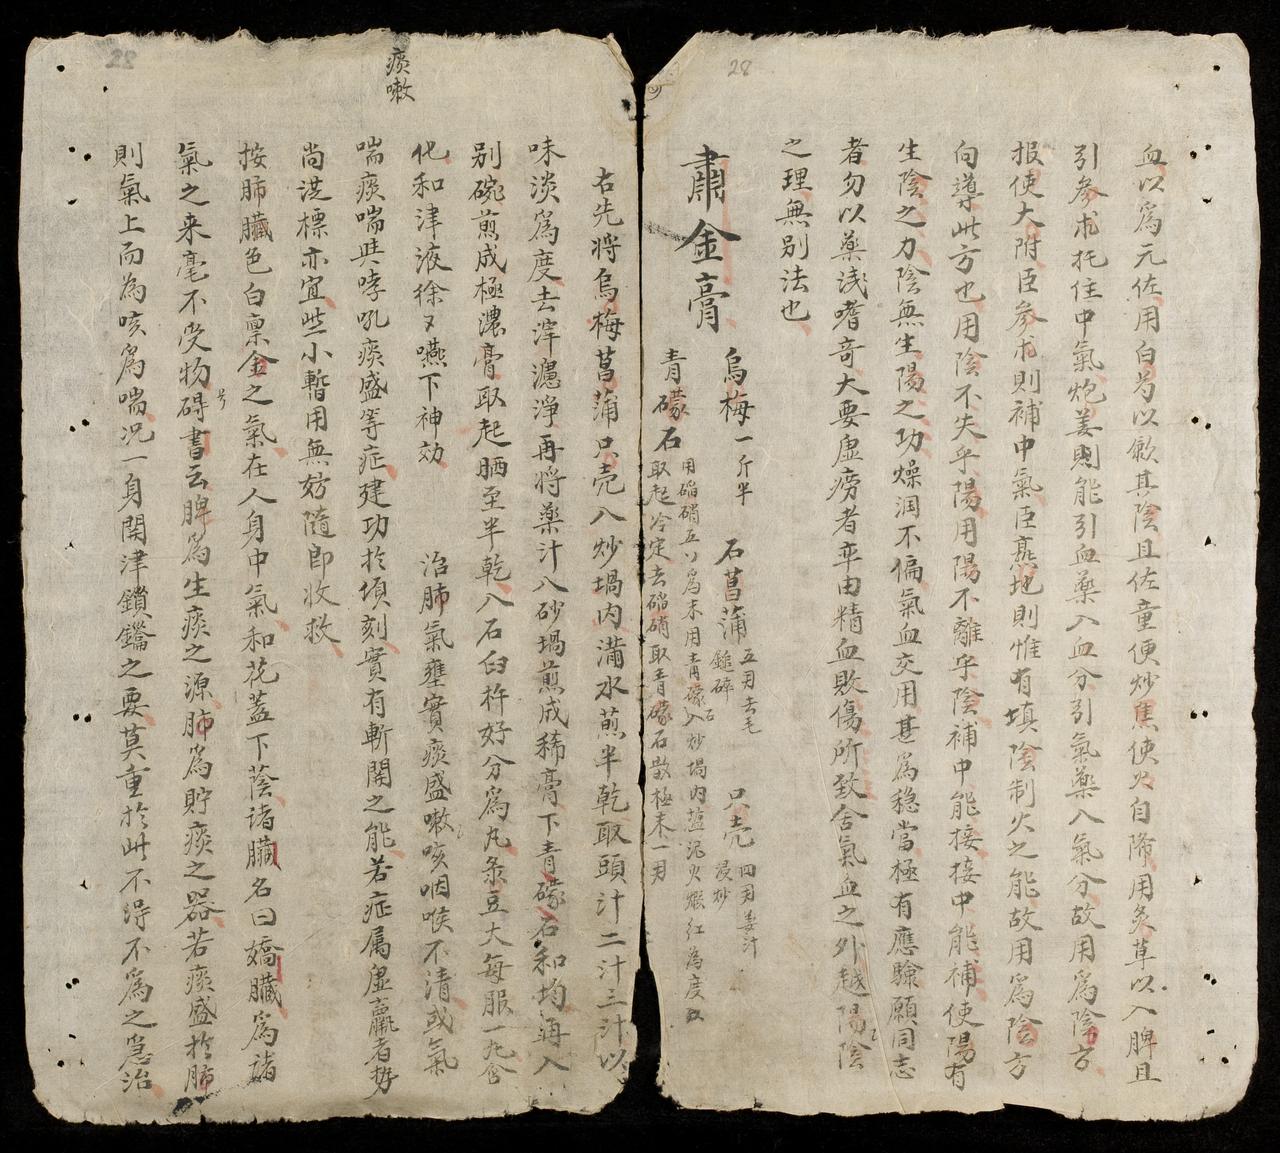 28
血以爲元佐用白芍以歛其陰且佐童便炒焦使火自降用炙草以入脾且
引參朮托住中氣炮姜則能引血藥入血分引氣藥入氣分故用爲陰方
报使大附臣參朮則補中氣臣熟地則惟有填陰制火之能故用爲陰方
向導此方也用陰不失乎陽用陽不離乎陰補中能接接中能補使陽有
生陰之力陰無生陽之功燥润不偏氣血交用甚爲穏當極有應驗願同志
者勿以藥浅嗜竒大要虛癆者率由精血敗傷所致舍氣血之外越陽陰
之理無别法也
肅金膏
烏梅一斤半 石菖蒲五月去毛鎚碎 只壳四月姜汁浸炒
青礞石用硝五爲末用青礞石入炒堝内盐泥火煆红為度
取起冷定去硝取青礞石散極末一月
右先將烏梅菖蒲只壳入炒堝内滿水煎半乾取頭汁二汁三汁以
味淡爲度去滓濾淨再将藥汁入砂堝煎成稀膏下青礞石和均再入
别碗煎成極濃膏取起晒至半乾入石臼杵好分爲丸条豆大每服一丸含
化和津液徐又嚥下神効 治肺氣壅實痰盛嗽咳咽喉不清或氣
痰嗽
喘痰喘與哮吼痰盛等症建功於頃刻實有斬關之能若症属虛羸者
尚洪標亦宜些小暫用無妨隨卽收救
按肺臟色白禀金之氣在人身中氣和花蓋下蔭諸臟名曰嬌臟爲諸
氣之来毫不受物碍書云脾爲生痰之源肺爲貯痰之器若痰盛於肺
則氣上而為咳爲喘况一身関津鎖鑰之要莫重於此不得不爲之急治
28